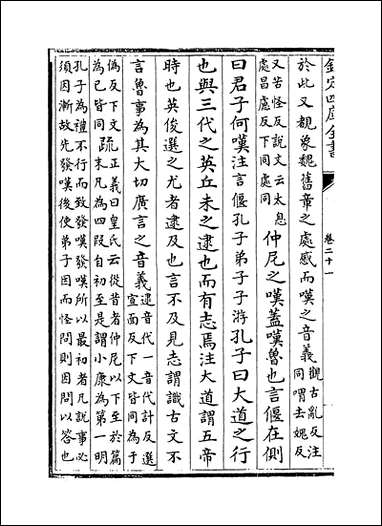 欽定四庫全書
卷二十一
於此又觀象魏舊章之處感而嘆之音義觀古亂反注同喟去媿反
又苦怪反說文云太息處昌慮反下同處同仲尼之嘆蓋嘆魯也言偃在側
曰君子何嘆注言偃孔子弟子子游孔子曰大道之行
也與三代之英丘未之逮也而有志焉注大道謂五帝
時也英俊選之尤者逮及也言不及見志謂識古文不
言魯事為其大切廣言之音義逮音代一音代計反選宣面反下文皆同為于
偽反下文為已皆同疏正義曰皇氏云從昔者仲尼以下至於篇末凡為四段自初至是謂小康為第一明
孔子為禮不行而致發嘆發嘆所以最初者凡說事必
須因漸故先發嘆後使弟子因而怪問則因問以答也